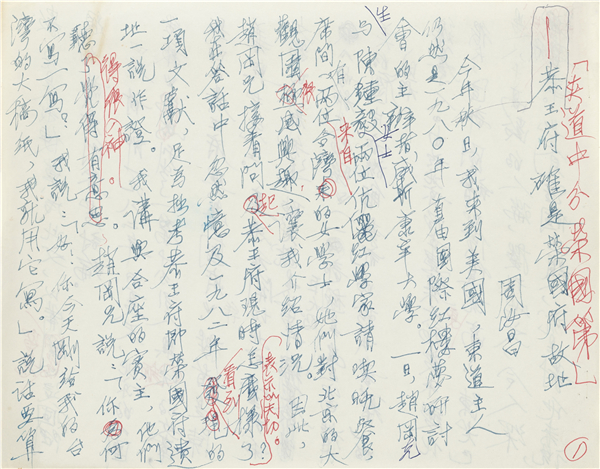 「夹道中分榮國第」
一 恭王府確是榮國府故址
周汝昌
今年秋日,我來到美國,東道主人
仍然是一九八〇年首由國際紅樓夢研討
會的主辦者,威斯康辛大學。一日,趙岡兄
与陳鍾毅女士兩位伉儷紅學家請喫晚餐,
席間有兩位來自台灣的女學士,她們對北京的大
觀園極感興趣,要我介紹情況。因此,
趙岡兄接着問起:恭王府現時怎麽樣了?表示關切。
我在答話中,忽然憶及一九八二年看到的
一項文獻,足爲拙考恭王府即榮國府遺
址一説作證。我講與合座的賓主,他們
聽得很入神。趙岡兄説:「你何
不寫一寫。」我説:「好,你今天剛給我的台
灣的大稿紙,我就用它寫。」説話要算
①